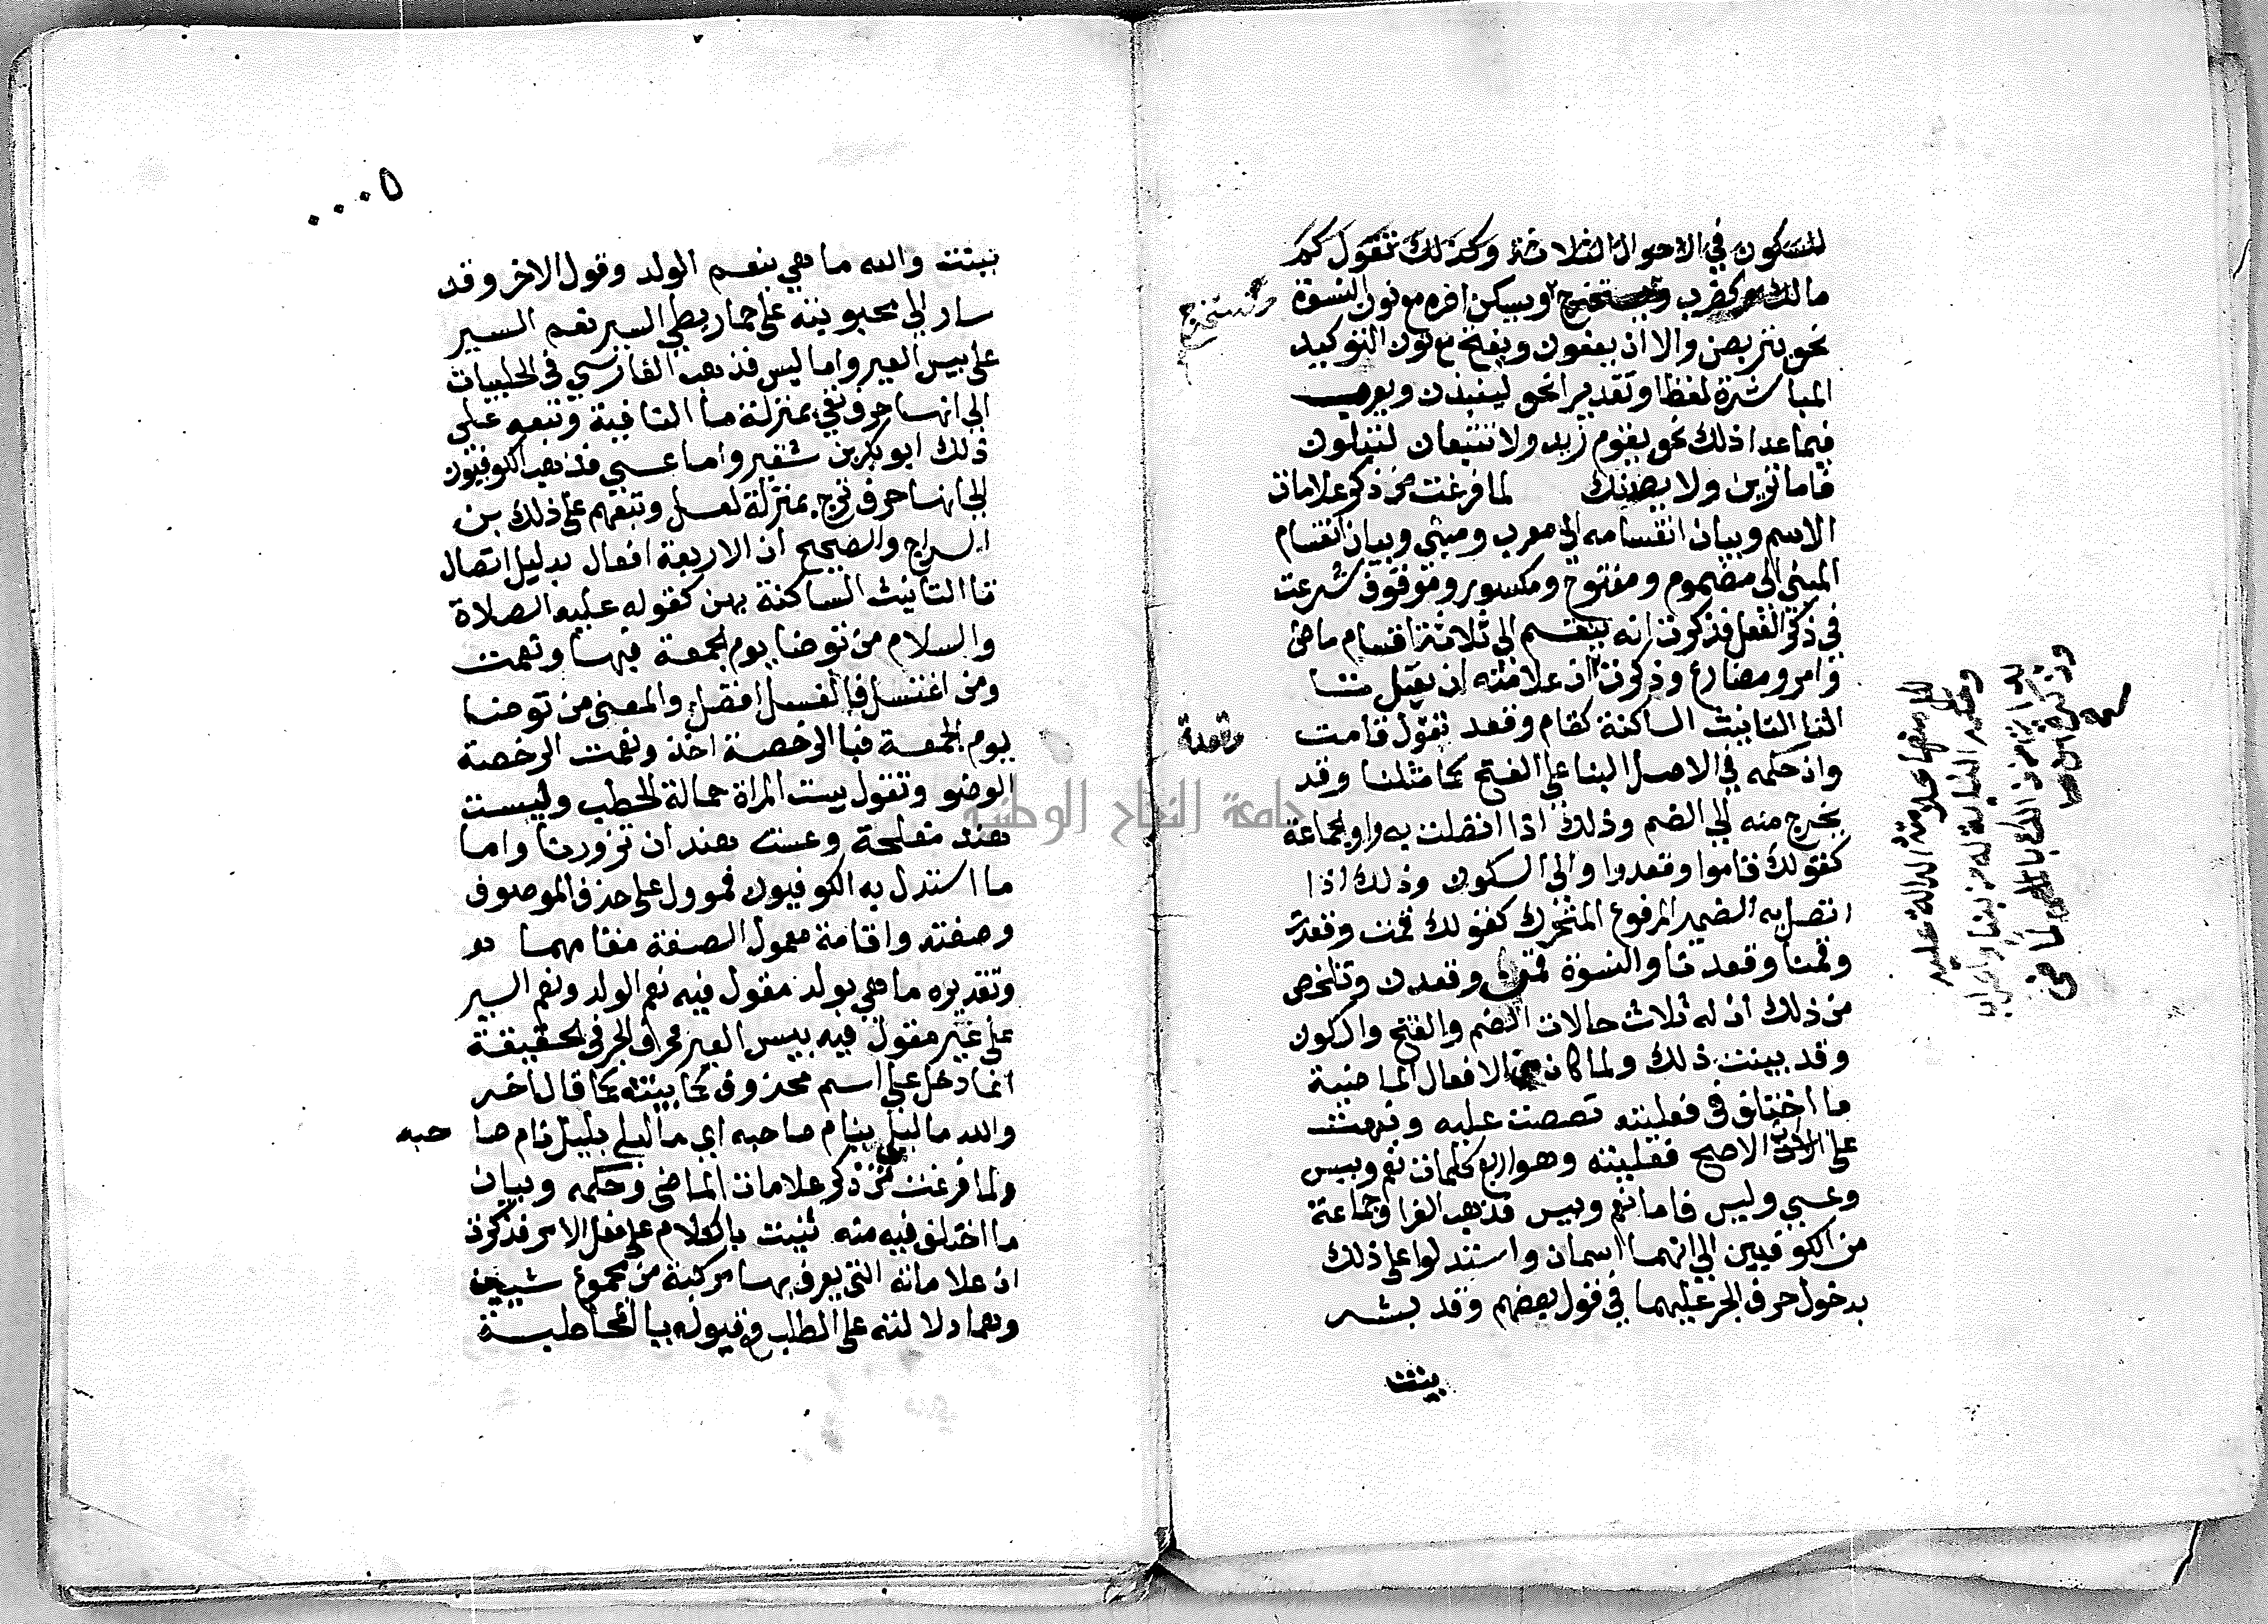 للسكون في الاحوال الثلاثة وكذلك تقول كم
مالك وكضرب ويستخرج ويسكن اخره مع نون النسوة
وكستخرج
نحو يتربصن والا ان يعفون ويفتح مع نون التوكيد
المباشرة لفظا وتقديرا نحو لينبذن ويعرب
فيما عدا ذلك نحو يقوم زيد ولا تتبعان لتبلون
فاما ترين ولا يصدنك لما فرغت من ذكر علامات
الاسم وبيان انقسامه الى معرب ومبني وبيان انقسام
المبني الى مضموم ومفتوح ومكسور وموقوف شرعت
في ذكر الفعل فذكرت انه ينقسم الى ثلاثة اقسام ماضي
وامر ومضارع وذكرت ان علامته ان يقبل تا
التا التانيث الساكنة كقام وقعد تقول قامت
وقعدة
وان حكمه في الاصل البنا على الفتح كما مثلنا وقد
يخرج منه الى الضم وذلك اذا اتصلت به واو الجماعة
كقولك قاموا وقعدوا والى السكون وذلك اذا
اتصل به الضمير المرفوع المتحرك كقولك قمت وقعدت
وقمنا وقعدنا والنسوة قمن وقعدن وتلخص
من ذلك ان له ثلاث حالات الضم والفتح والسكون
وقد بينت ذلك ولما كان من الافعال الماضية
ما اختلف في فعليته نصصت عليه ونبهت
على ان الاصح فعليته وهو اربع كلمات نعم وبيس
وعسي وليس فاما نعم وبيس فذهب الفرا وجماعة
من الكوفيين الى انهما اسمان واستدلوا على ذلك
بدخول حرف الجر عليهما في قول بعضهم وقد بشر
بينت
لكل منها علامته الدالة عليه
وحكمه الثابت له من بنا واعراب
وذكرت
٥٠٠٠
ببنت والله ما هي بنعم الولد وقول الاخر وقد
سار الى محبوبته على حمار بطي السير نعم السير
على بيس العير واما ليس فذهب الفارسي في الحلبيات
الى انها حرف نفي بمنزلة ما النافية وتبعه على
ذلك ابو بكر بن شقير واما عسي فذهب الكوفيون
الى انها حرف ترج بمنزلة لعل وتبعهم على ذلك بن
السراج والصحيح ان الاربعة افعال بدليل اتصال
تا التانيث الساكنة بهن كقوله عليه الصلاة
والسلام من توضا يوم الجمعة فبها ونعمت
ومن اغتسل فالغسل افضل والمعنى من توضا
يوم الجمعة فبا الرخصة اخذ ونعمت الرخصة
الوضو وتقول بيست المراة حمالة الحطب وليست
هند مفلحة وعست هند ان تزورنا واما
ما استدل به الكوفيون فموول على حذف الموصوف
وصفته واقامة معمول الصفة مقامهما
وتقديره ما هي بولد مقول فيه نعم الولد ونعم السير
على عير مقول فيه بيس العير فحرف الجر في الحقيقة
انما دخل على اسم محذوف كما بينته كما قال اخر
والله ما ليلي ينام صاحبه اي ما ليلي بليل نام صا حبه
ولما فرغت من ذكر علامات الماضي وحكمه وبيان
ما اختلف فيه منه ثنيت بالكلام على فعل الامر فذكرت
ان علاماته التي يعرف بها مركبة من مجموع شييين
وهما دلالته على الطلب وقبوله يا المخاطبة
جامعة النجاح الوطنية